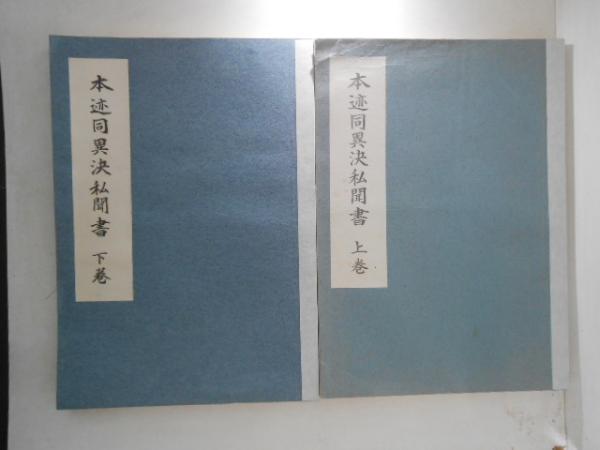 本迹同異決私聞書 上巻
本迹同異決私聞書 下巻